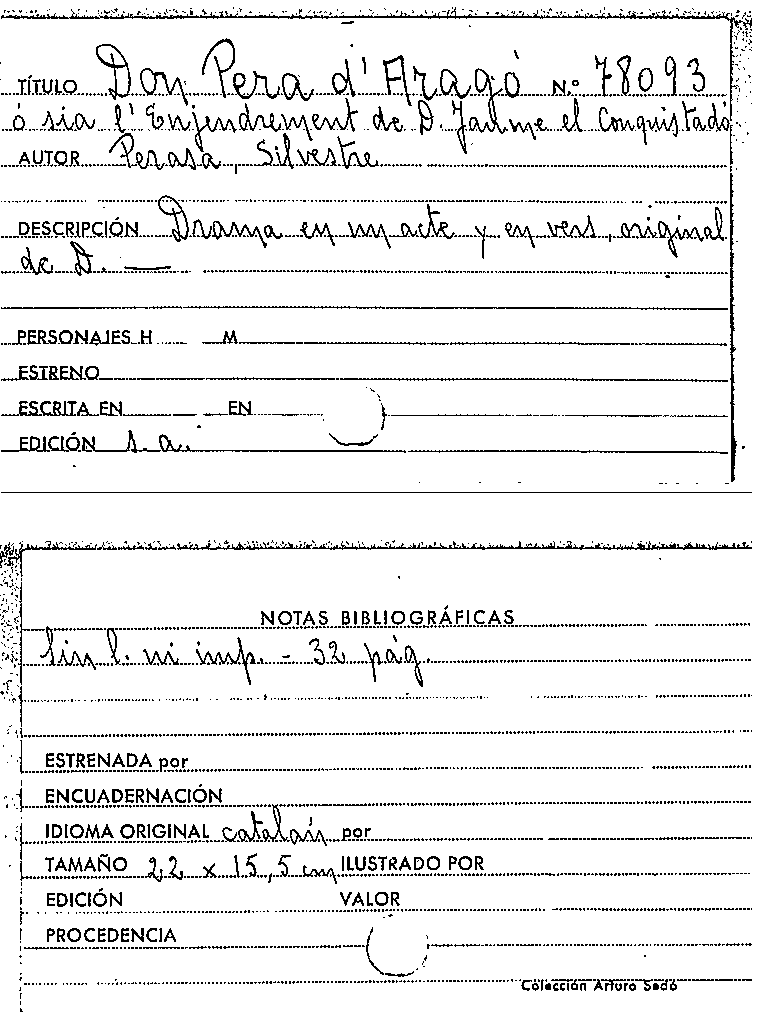 TÍTULO Don Pera d'Aragó N.º 78093
ó sia l'Enjendrement de D. Jaume el Conquistadó
AUTOR Perasa, Silvestre
DESCRIPCIÓN Drama en un acte y en vers, original
de D. —
PERSONAJES H M
ESTRENO
ESCRITA EN EN
EDICIÓN s.a.
NOTAS BIBLIOGRÁFICAS
Sin l. ni imp. - 32 pág.
ESTRENADA por
ENCUADERNACIÓN
IDIOMA ORIGINAL catalán por
TAMAÑO 22 x 15,5 cm ILUSTRADO POR
EDICIÓN VALOR
PROCEDENCIA
Colección Arturo Sedó